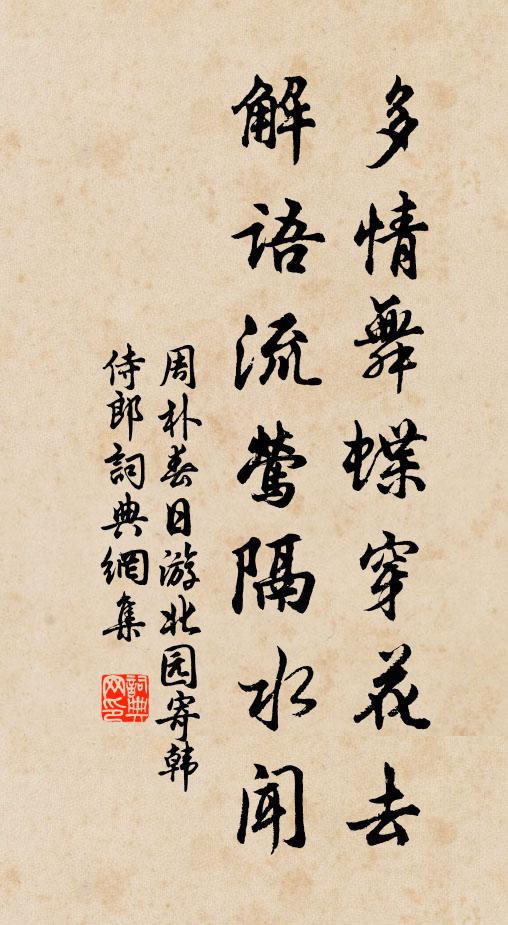 多情舞蝶穿花去
解语流莺隔水闻
周朴春日游北园寄韩
侍郎詞典網集
詞典
网印